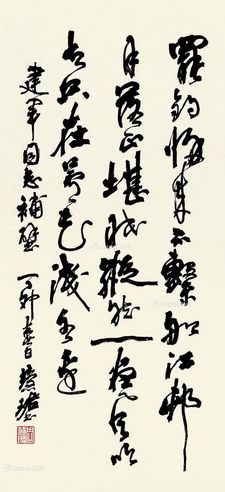 罷釣归来不繫船江邨
月落正堪眠縱然一夜風吹
去只在芦花浅水邊
建军同志補壁 丁卯春日